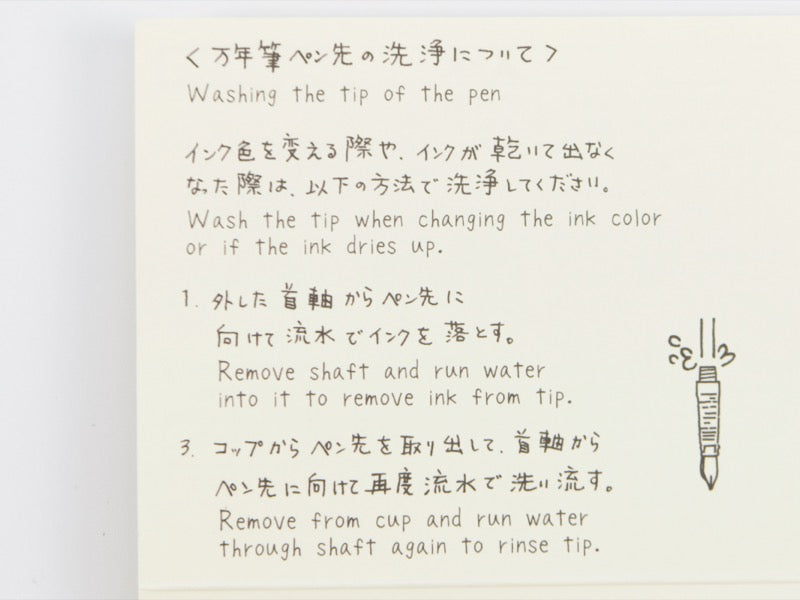 〈万年筆ペン先の洗浄について〉
Washing the tip of the pen
インク色を変える際や、インクが乾いて出なく
なった際は、以下の方法で洗浄してください。
Wash the tip when changing the ink color
or if the ink dries up.
1. 外した首軸からペン先に
向けて流水でインクを落とす。
Remove shaft and run water
into it to remove ink from tip.
3. コップからペン先を取り出して、首軸から
ペン先に向けて再度流水で洗い流す。
Remove from cup and run water
through shaft again to rinse tip.